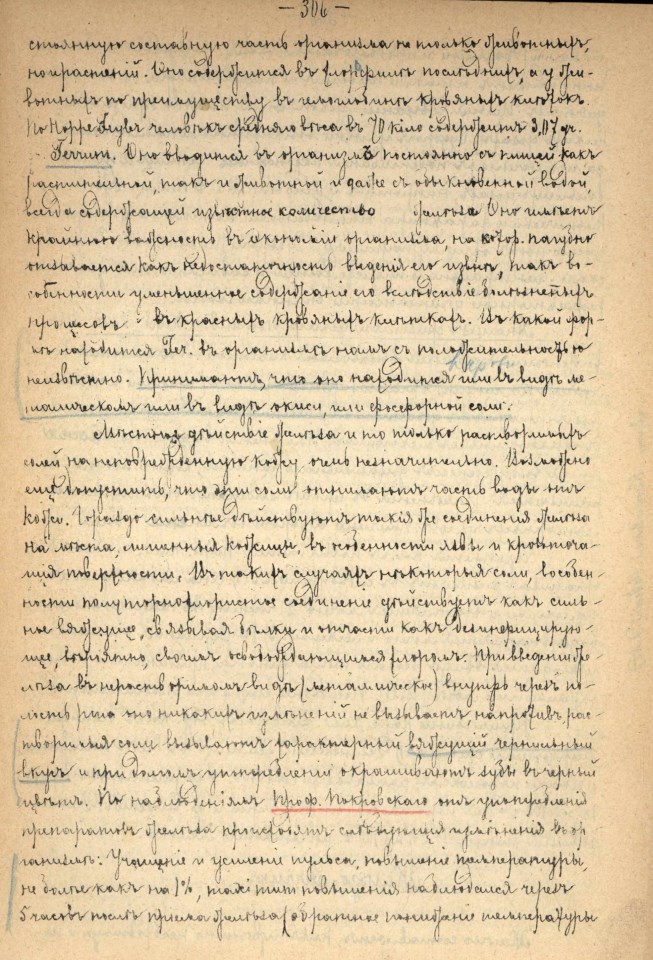 — 306 —
стоянную составную часть организма не только животныхъ,
но и растеній. Оно содержится въ хлорофилѣ послѣднихъ, а у жи-
вотныхъ по преимуществу въ гемоглобинѣ кровяныхъ кистокъ.
По Hoppe Зеув'ъ человѣкъ средняго вѣса въ 70 кило содержитъ 3,07 gr.
Ferrum. Оно вводится въ организмъ постоянно съ пищей какъ
растительной, такъ и животной и даже съ обыкновенной водой,
всегда содержащей извѣстное количество желѣза. Оно имѣетъ
крайнюю важность въ экономіи организма, на котор. пагубно
отзывается какъ недостаточность введенія его извнѣ, такъ во-
собенности уменьшенное содержаніе его вслѣдствіе болѣзненныхъ
процессовъ въ красныхъ кровяныхъ кистикахъ. Въ какой фор-
мѣ находится Fer. въ организмѣ намъ съ положительностью
неизвѣстно. Принимаютъ, что оно находится или въ видѣ ме-
таллическомъ или въ видѣ окиси, или фосфорной соли.
Мѣстное дѣйствіе желѣза и то только растворимыхъ
солей, на неповрежденную кожу очень незначительно. Возможно
еще допустить, что эти соли отнимаютъ часть воды отъ
кожи. Гораздо сильнѣе дѣйствуютъ такія же соединенія желѣза
на мѣста, лишенныя кожицы, въ особенности язвы и кровоточа-
щія поверхности. Въ такихъ случаяхъ нѣкоторыя соли, въ особен-
ности полуторнохлористое соединеніе дѣйствуетъ какъ силь-
ное вяжущее, связывая бѣлки и отчасти какъ дезинфицирую-
щее, вѣроятно, своимъ освобождающимся хлоромъ. При введеніи же-
лѣза въ нерастворимомъ видѣ (металлическое) внутрь черезъ по-
лость рта оно никакихъ измѣненій не вызываетъ, напротивъ, рас-
творимыя соли вызываютъ характерный вяжущій чернильный
вкусъ и при долгомъ употребленіи окрашиваютъ зубы въ черный
цвѣтъ. По наблюденіямъ Проф. Покровскаго отъ употребленія
препаратовъ желѣза происходятъ слѣдующія измѣненія въ ор-
ганизмѣ: Учащеніе и усиленіе пульса, повышеніе температуры,
не болѣе какъ на 1%, maximum повышенія наблюдался черезъ
5 часовъ послѣ пріема желѣза (обратное пониженіе температуры